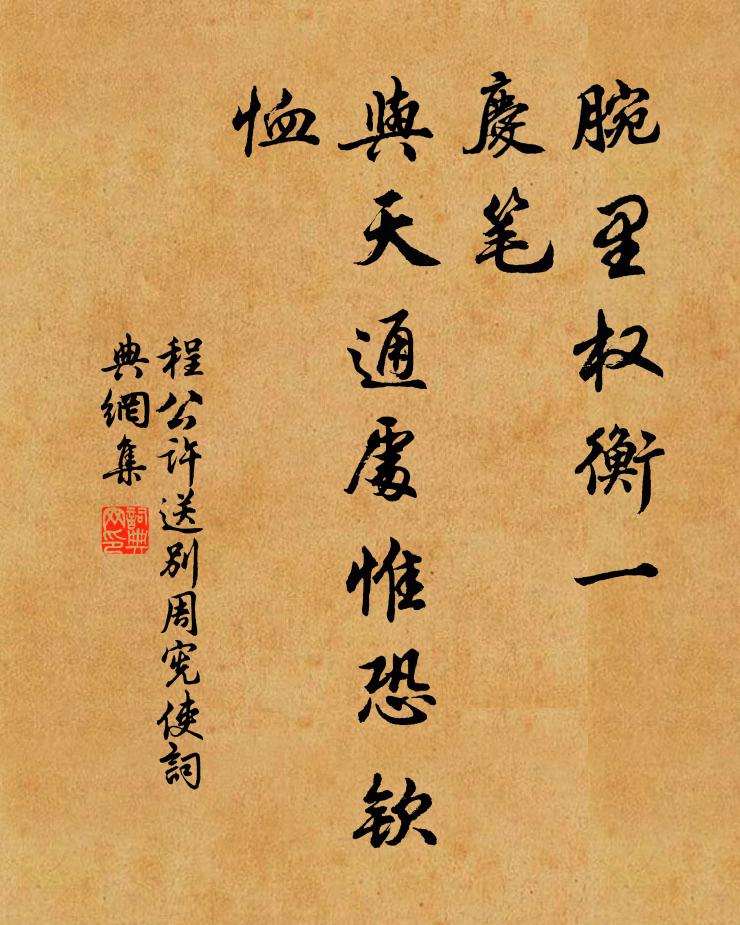 腕里权衡一
慶笔
與天通處惟恐欽
恤
程公許送别周宪使詞
典網集
詞典
网印